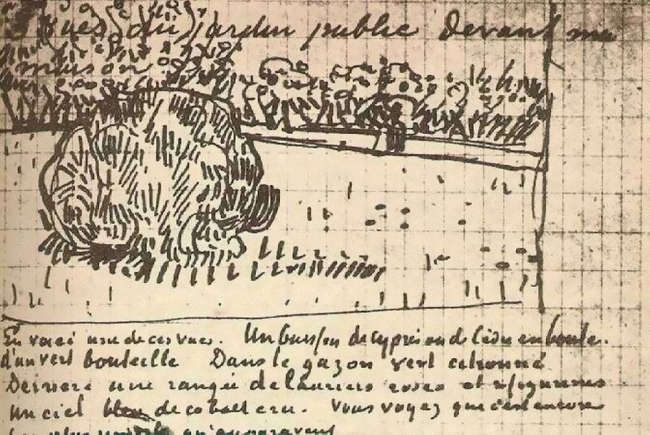 vues du jardin public devant ma
maison
En voici une de ces vues. Un buisson de cyprès ou de cèdre en boule.
d'un vert bouteille Dans le gazon vert citronné
Derrière une rangée de lauriers roses et
un ciel bleu de cobalt cru. Vous voyez que c'est encore
plus simple qu'auparavant